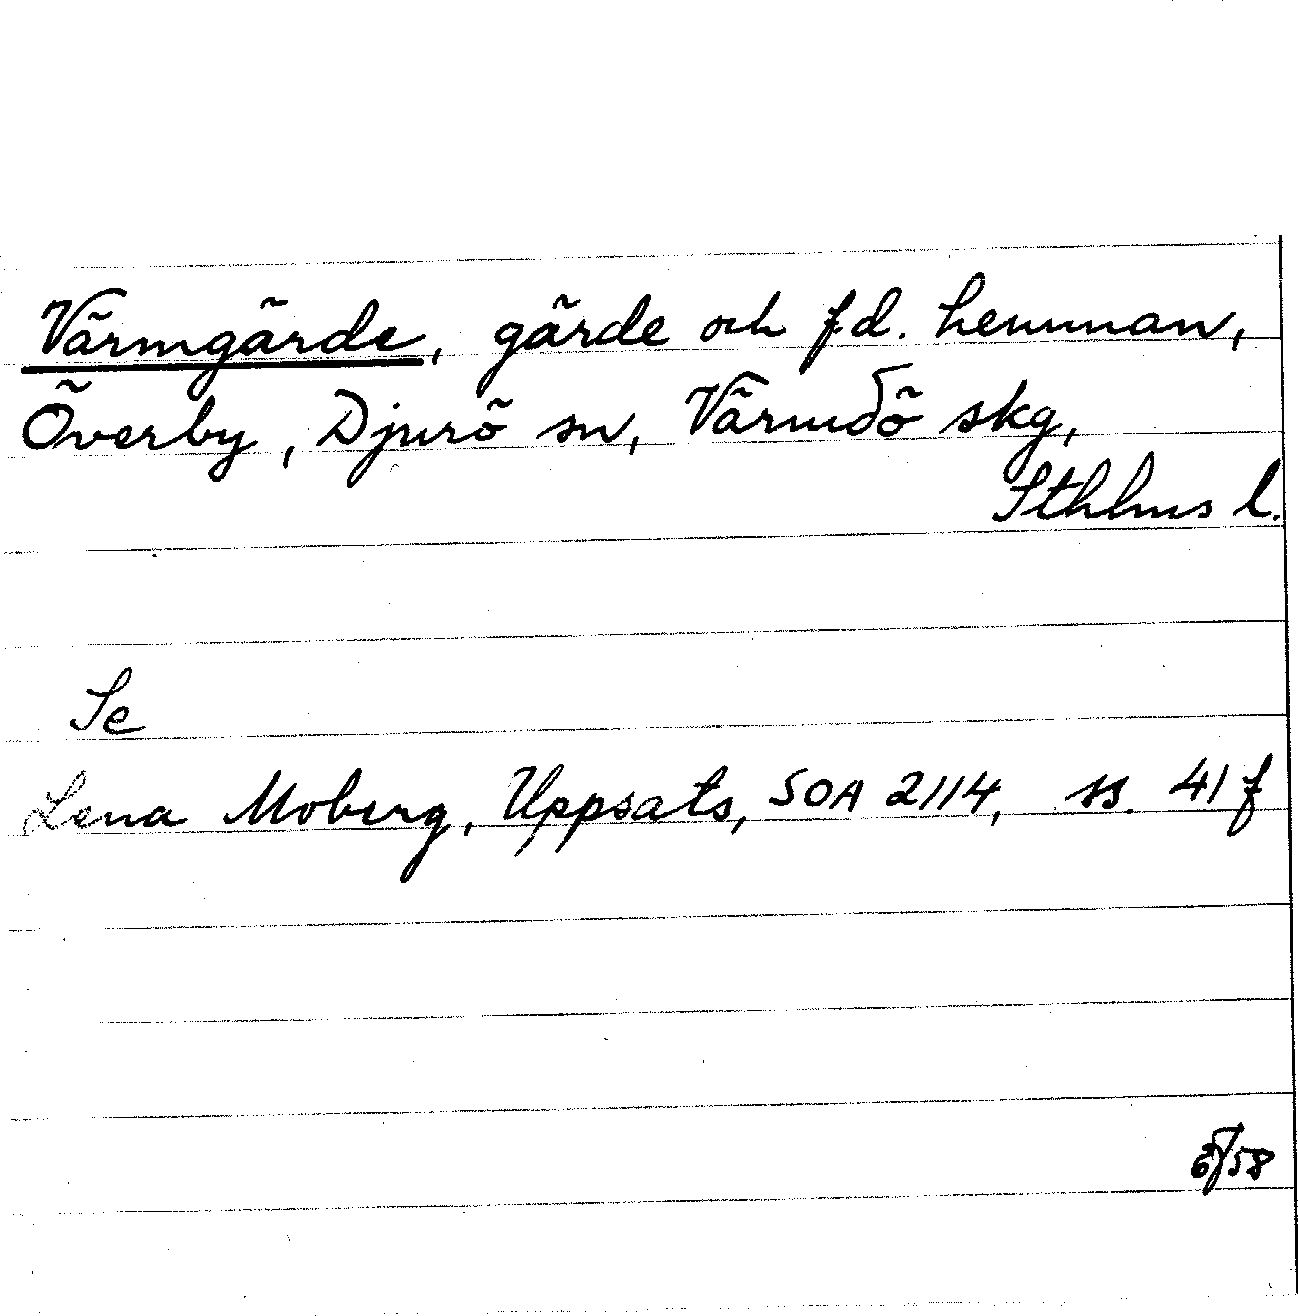 Värmgärde, gärde och f.d. hemman,
Överby, Djurö sn, Värmdö skg,
Sthlms l.
Se
Lena Moberg, Uppsats, SOA 2114, ss. 41 f